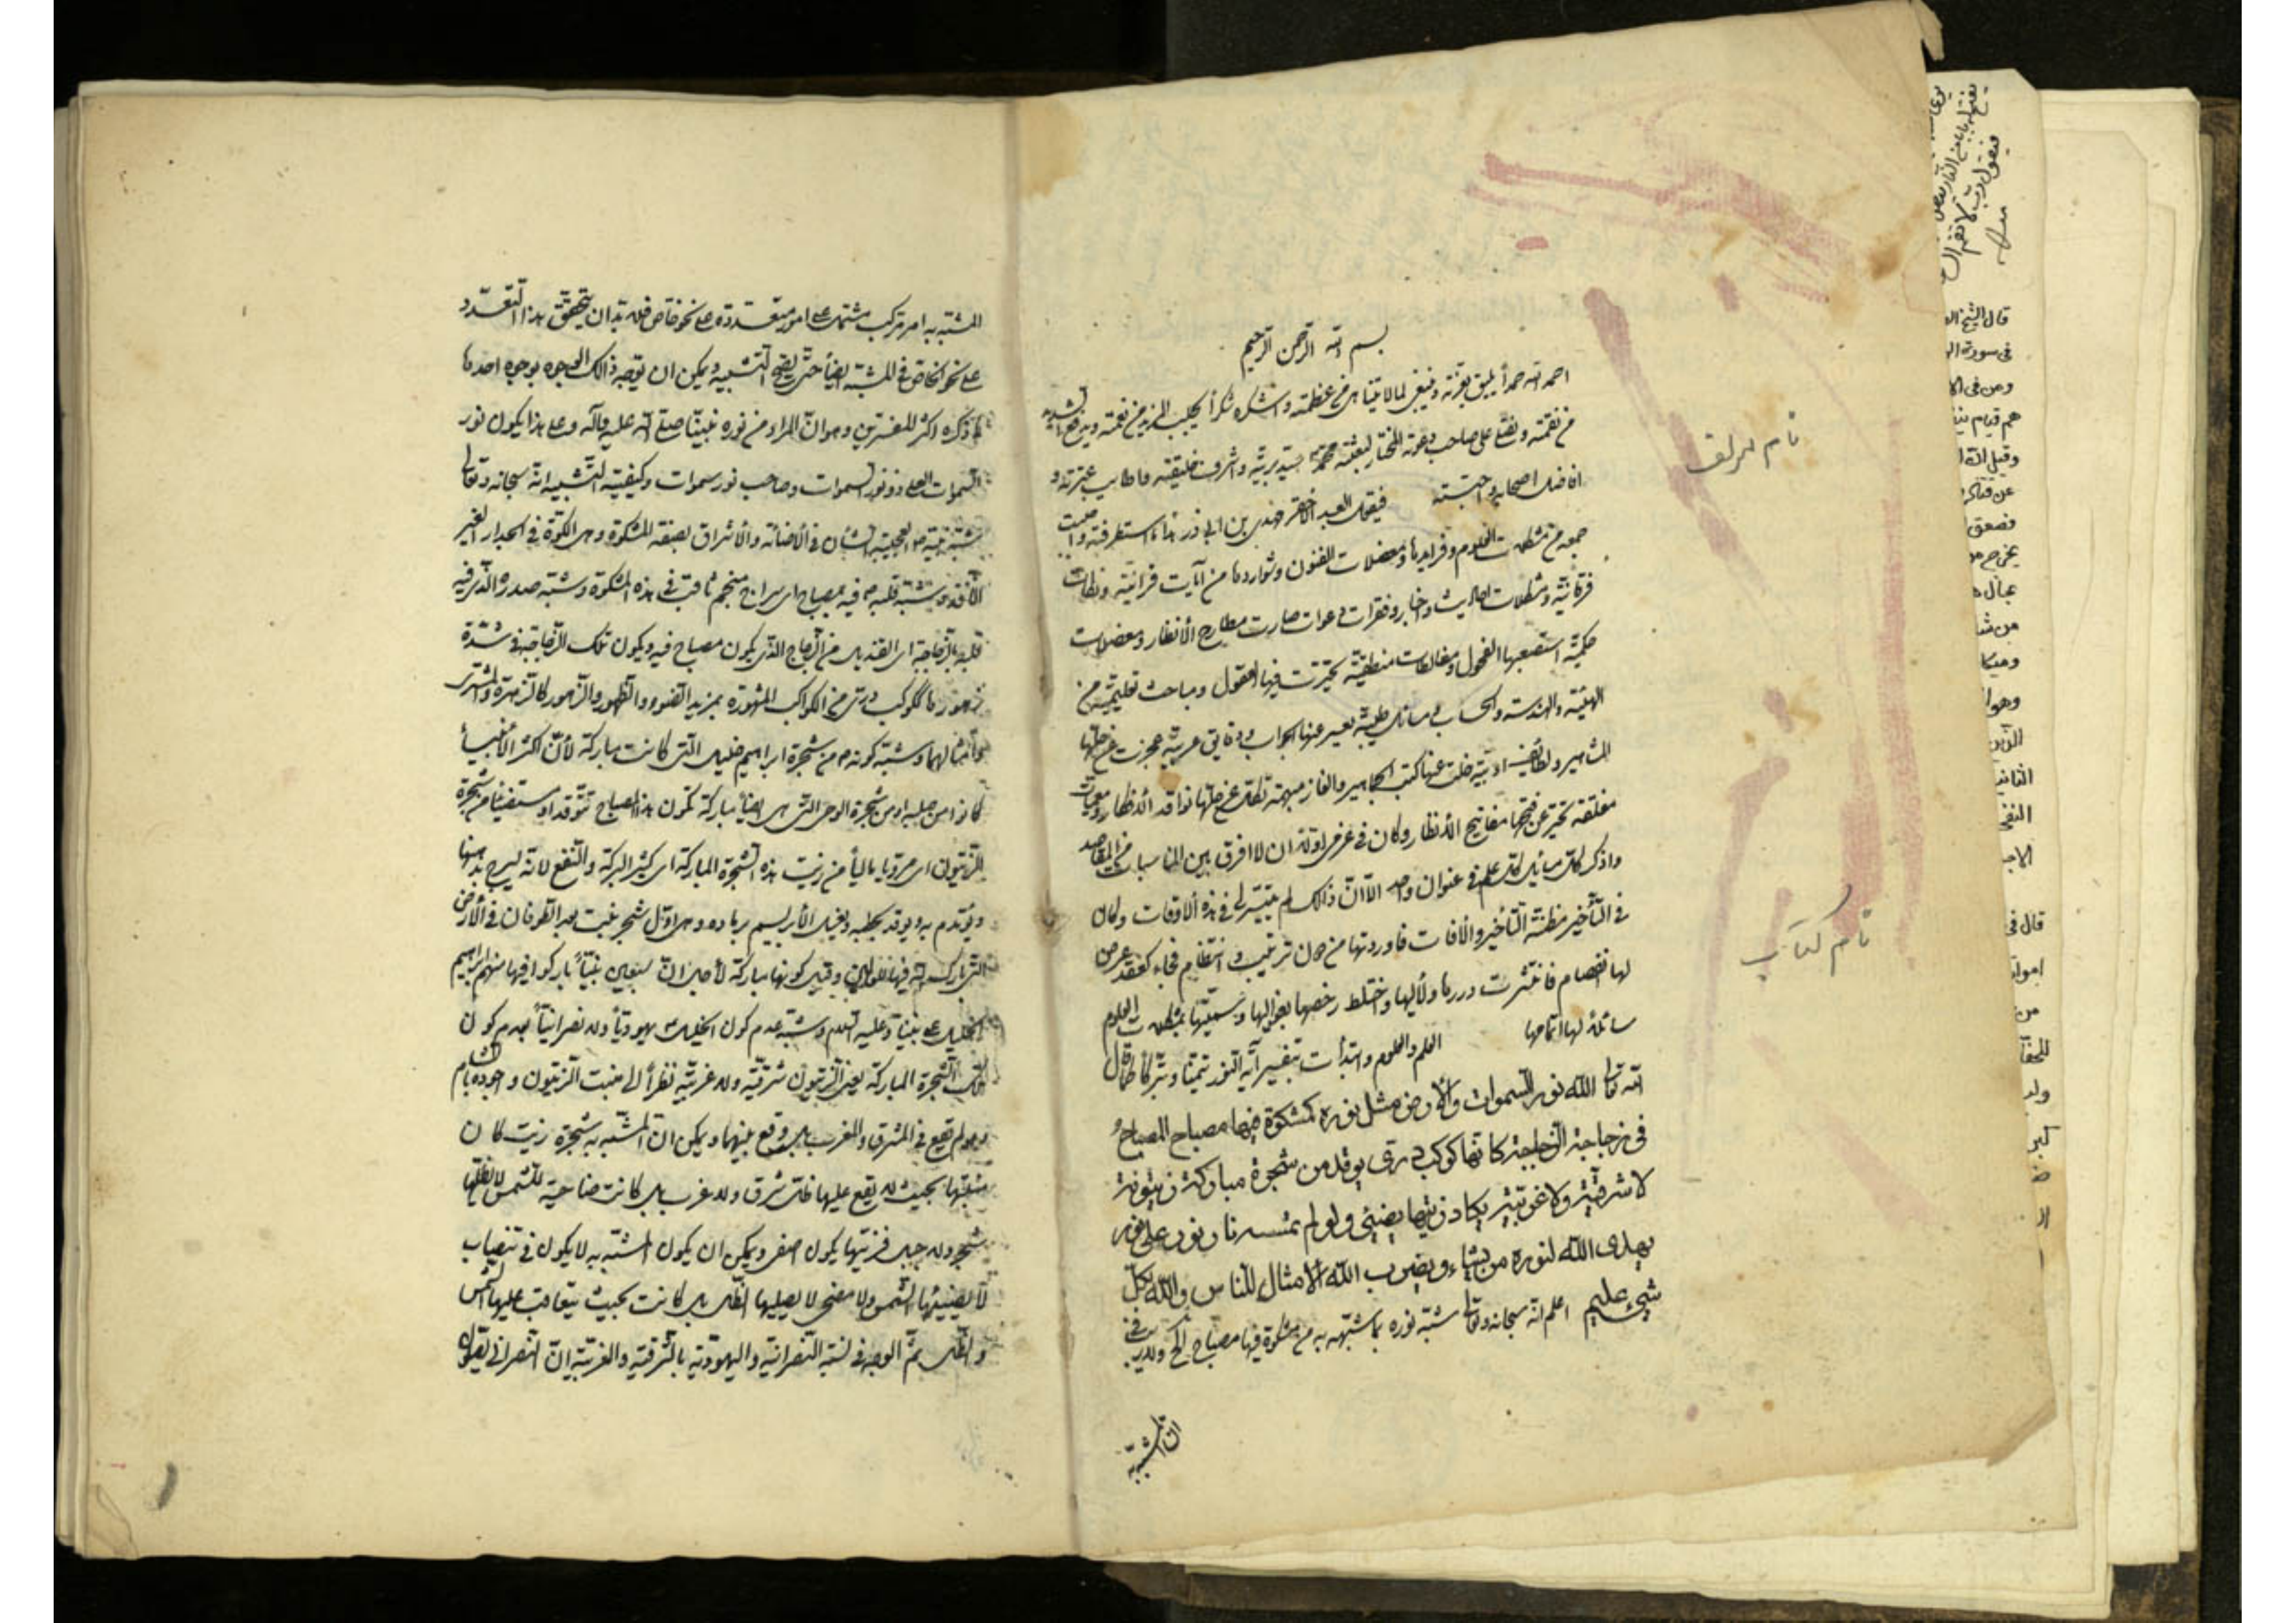 بسم الله الرحمن الرحيم
احمد الله حمداً يليق بعزته وينبغي لما لا يتناهى من عظمته واشكره شكراً يجلب المزيد من نعمته ويدفع الشديد
من نقمته ونصلى على صاحب دعوته المختار لبعثته محمد سيد بريته واشرف خليقته واطايب عترته و
افاضل اصحابه واحبته فيقول العبد الأحقر مهدى بن ابى ذر هذا ما استطرفته و
جمعه من مشكلات العلوم وفرايدها ومعضلات الفنون وشواردها من آيات قرآنية و
فرقانية ومشكلات احاديث واخبار وفقرات دعوات صارت مطارح الأنظار ومعضلات
حكمية استصعبها الفحول ومغالطات منطقية تحيرت فيها العقول ومباحث تعليمية من
الهيئة والهندسة والحساب ومسائل طبية يعسر عنها الجواب ودقايق عربية عجزت عن حلها
المشاهير ولطائف ادبية خلت عنها كتب الجماهير والغاز مبهمة تكل عن حلها نوافد الأنظار ومعميات
مغلقة تحير عن فتحها مفاتيح الأنظار وكان في غرضى اولا ان لا افرق بين المناسبات من المقاصد
واذكر كل مسايل كل علم في عنوان واحد الا ان ذالك لم يتيسر لى في هذه الأوقات وكان
في التأخير مظنة التأخير والأفات فاوردتها من دون ترتيب وانتظام فجاء كعقد عرض
لها انفصام فانتثرت دررها ولأليها واختلط رخصها بغواليها وسميتها بمشكلات العلوم
سائلا لها اتمامها العلم والعلوم وابتدأت بتفسير آية النور تيمنا وتبركا قال
الله تعالى الله نور السموات والأرض مثل نوره كمشكوة فيها مصباح المصباح
في زجاجة الزجاجة كانها كوكب درى يوقد من شجرة مباركة زيتونة
لا شرقية ولا غربية يكاد زيتها يضيئ ولو لم تمسسه نار نور على نور
يهدى الله لنوره من يشاء ويضرب الله الأمثال للناس والله بكل
شيئ عليم اعلم انه سبحانه وتعالى شبه نوره بما شبهه به من مشكوة فيها مصباح الخ ولا ريب في
ان المشبه به
نام مولف
نام كتاب
المشبه به امر مركب مشتمل على امور متعددة على نحو خاص فلابد ان يتحقق هذا التعدد
على نحو الخاص في المشبه ايضاً حتى يصح التشبيه ويمكن ان يوجه ذالك الوجوه بوجوه احدها
ما ذكره اكثر المفسرين وهو ان المراد من نوره نبينا صلى الله عليه وآله وعلى هذا يكون نور
السموات العلى ذو نور السموات وصاحب نور سموات وكيفية التشبيه انه سبحانه وتعالى
شبه نبيه ص العجيبة الشأن في الأضائة والأشراق بصفة المشكوة وهى الكوة في الجدار الغير
النافذ وشبه قلبه ص فيه بمصباح اى سراج منجم ثاقب في هذه المشكوة وشبه صدره الذى فيه
قلبه بالزجاجة اى القنديل من الزجاج الذى يكون مصباح فيه ويكون تلك الزجاجة في شدة
ظهورها ككوكب درى من الكواكب المشهورة بمزيد الضوء والظهور والزهور كالزهرة والمشترى
وامثالهما وشبه كونه ص من شجرة ابراهيم خليل التى كانت مباركة لأن اكثر الأنبياء
كانوا من صلبه او من شجرة الوحى التى هى ايضاً مباركة بكون هذا المصباح توقد او مستضيئا من شجرة
الزيتون اى مرويا باليا من زيت هذه الشجرة المباركة اى كثير البركة والنفع لانه يسرج بدهنها
ويؤتدم به ويوقد بحطبه ويغسل الأبريسم برماده وهى اول شجر نبت بعد الطوفان في الأرض
التى بارك الله فيها للعالمين وقيل كونها مباركة لأجل ان سبعين نبياً باركوا فيها منهم ابراهيم
الخليل على نبينا وعليه السلام وشبه عدم كون الخليل يهوديا ولا نصرانياً بعدم كون
تلك الشجرة المباركة يعنى الزيتون شرقية ولا غربية نظراً الى منبت الزيتون واجوده بالشام
وهو لم يقع في المشرق والمغرب بل وقع بينهما ويمكن ان المشبه به شجرة زيت كان
منبتها بحيث لا يقع عليها ظل شرق ولا غرب بل كانت ضاحية للشمس لا يظلها
شجر ولا جبل فزيتها يكون اصفى ويمكن ان يكون المشبه به لا يكون في
لا يضيئها الشمس ولا مضحى لا يصليها الظل بل كانت بحيث يتعاقب عليها الشمس
والظل ثم الوجه في نسبة النصرانية واليهودية بالشرقية والغربية ان النصرانى
قال الشيخ
في سورة
ومن في
وقيل
فصعق
يخرج من
من شا
وهو
النفخ
قال في
من